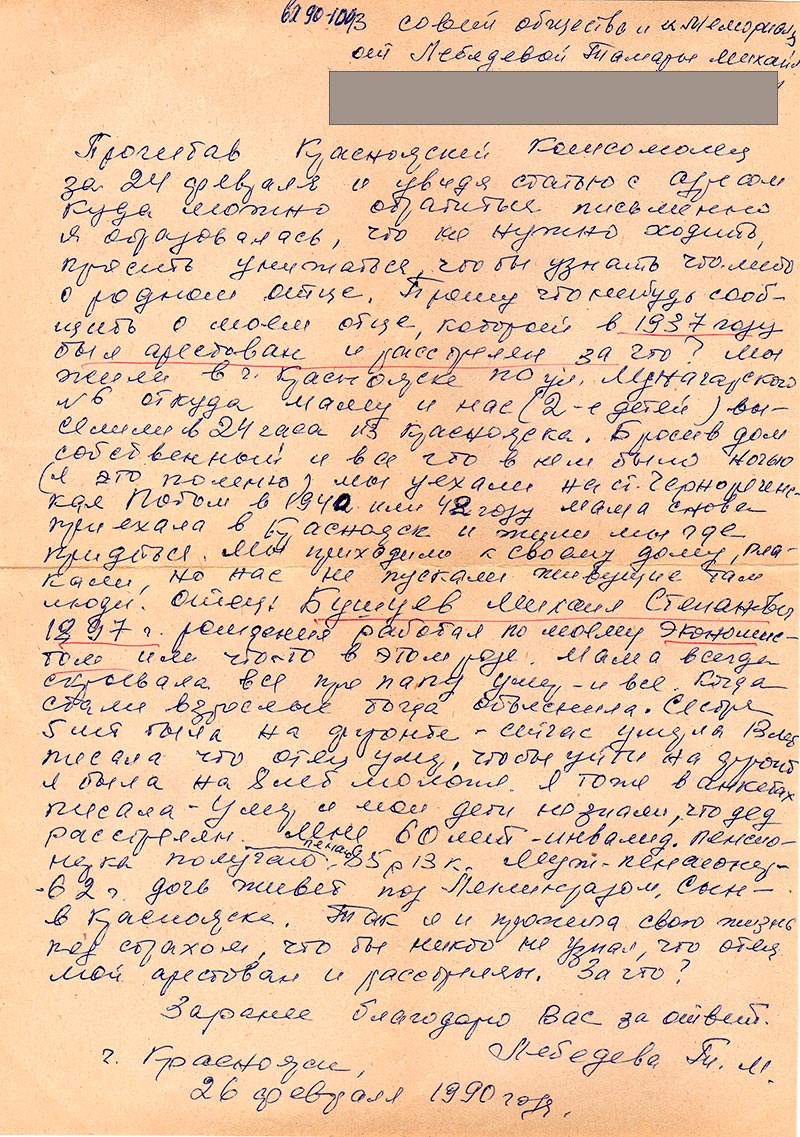 вх 90-1093 совет общества и "Мемориал
от Лебядевой Тамары Михайл
Прочитав Красноярский Комсомолец
за 24 февраля и увидя статью с адресом
куда можно обратиться письменно
я обрадовалась, что не нужно ходить,
просить унижаться, чтобы узнать что-либо
о родном отце. Прошу что нибудь сооб-
щить о моем отце, которой в 1937 году
был арестован и расстрелян за что? Мы
жили в г. Красноярске по ул. Луначарского
№6 откуда маму и нас (2-е детей) вы-
селили в 24 часа из Красноярска. Бросив дом
собственный и все что в нем было ночью
(я это помню) мы уехали на ст. Чернореченс-
кая Потом в 1940 или 42 году мама снова
приехала в Красноярск и жили мы где
придеться. Мы приходили к своему дому, пла-
кали, но нас не пускали живущие там
люди. Отец:
1897 г. рождения работал по моему Экономис-
том или что-то в этом роде. Мама всегда
скрывала все про папу умер - и все. Когда
стали взрослые тогда объяснила. Сестра
5 лет была на фронте - сейчас умерла 13 лет
писала что отец умер, чтобы уйти на фронт
я была на 8 лет моложе. Я тоже в анкетах
писала - умер и мои дети не знали, что дед
расстрелян. Мне 60 лет - инвалид. пенсио-
нерка получаю пенсию 85 р 13 к. Муж - пенсионер -
- 62 г. дочь живет под Ленинградом, сын -
в Красноярске. Так я и прожила свою жизнь
под страхом, что бы никто не узнал, что отец
мой арестован и расстрелян. За что?
Заранее благодарю Вас за ответ.
г. Красноярск, Лебедева Т. М.
26 февраля 1990 года.